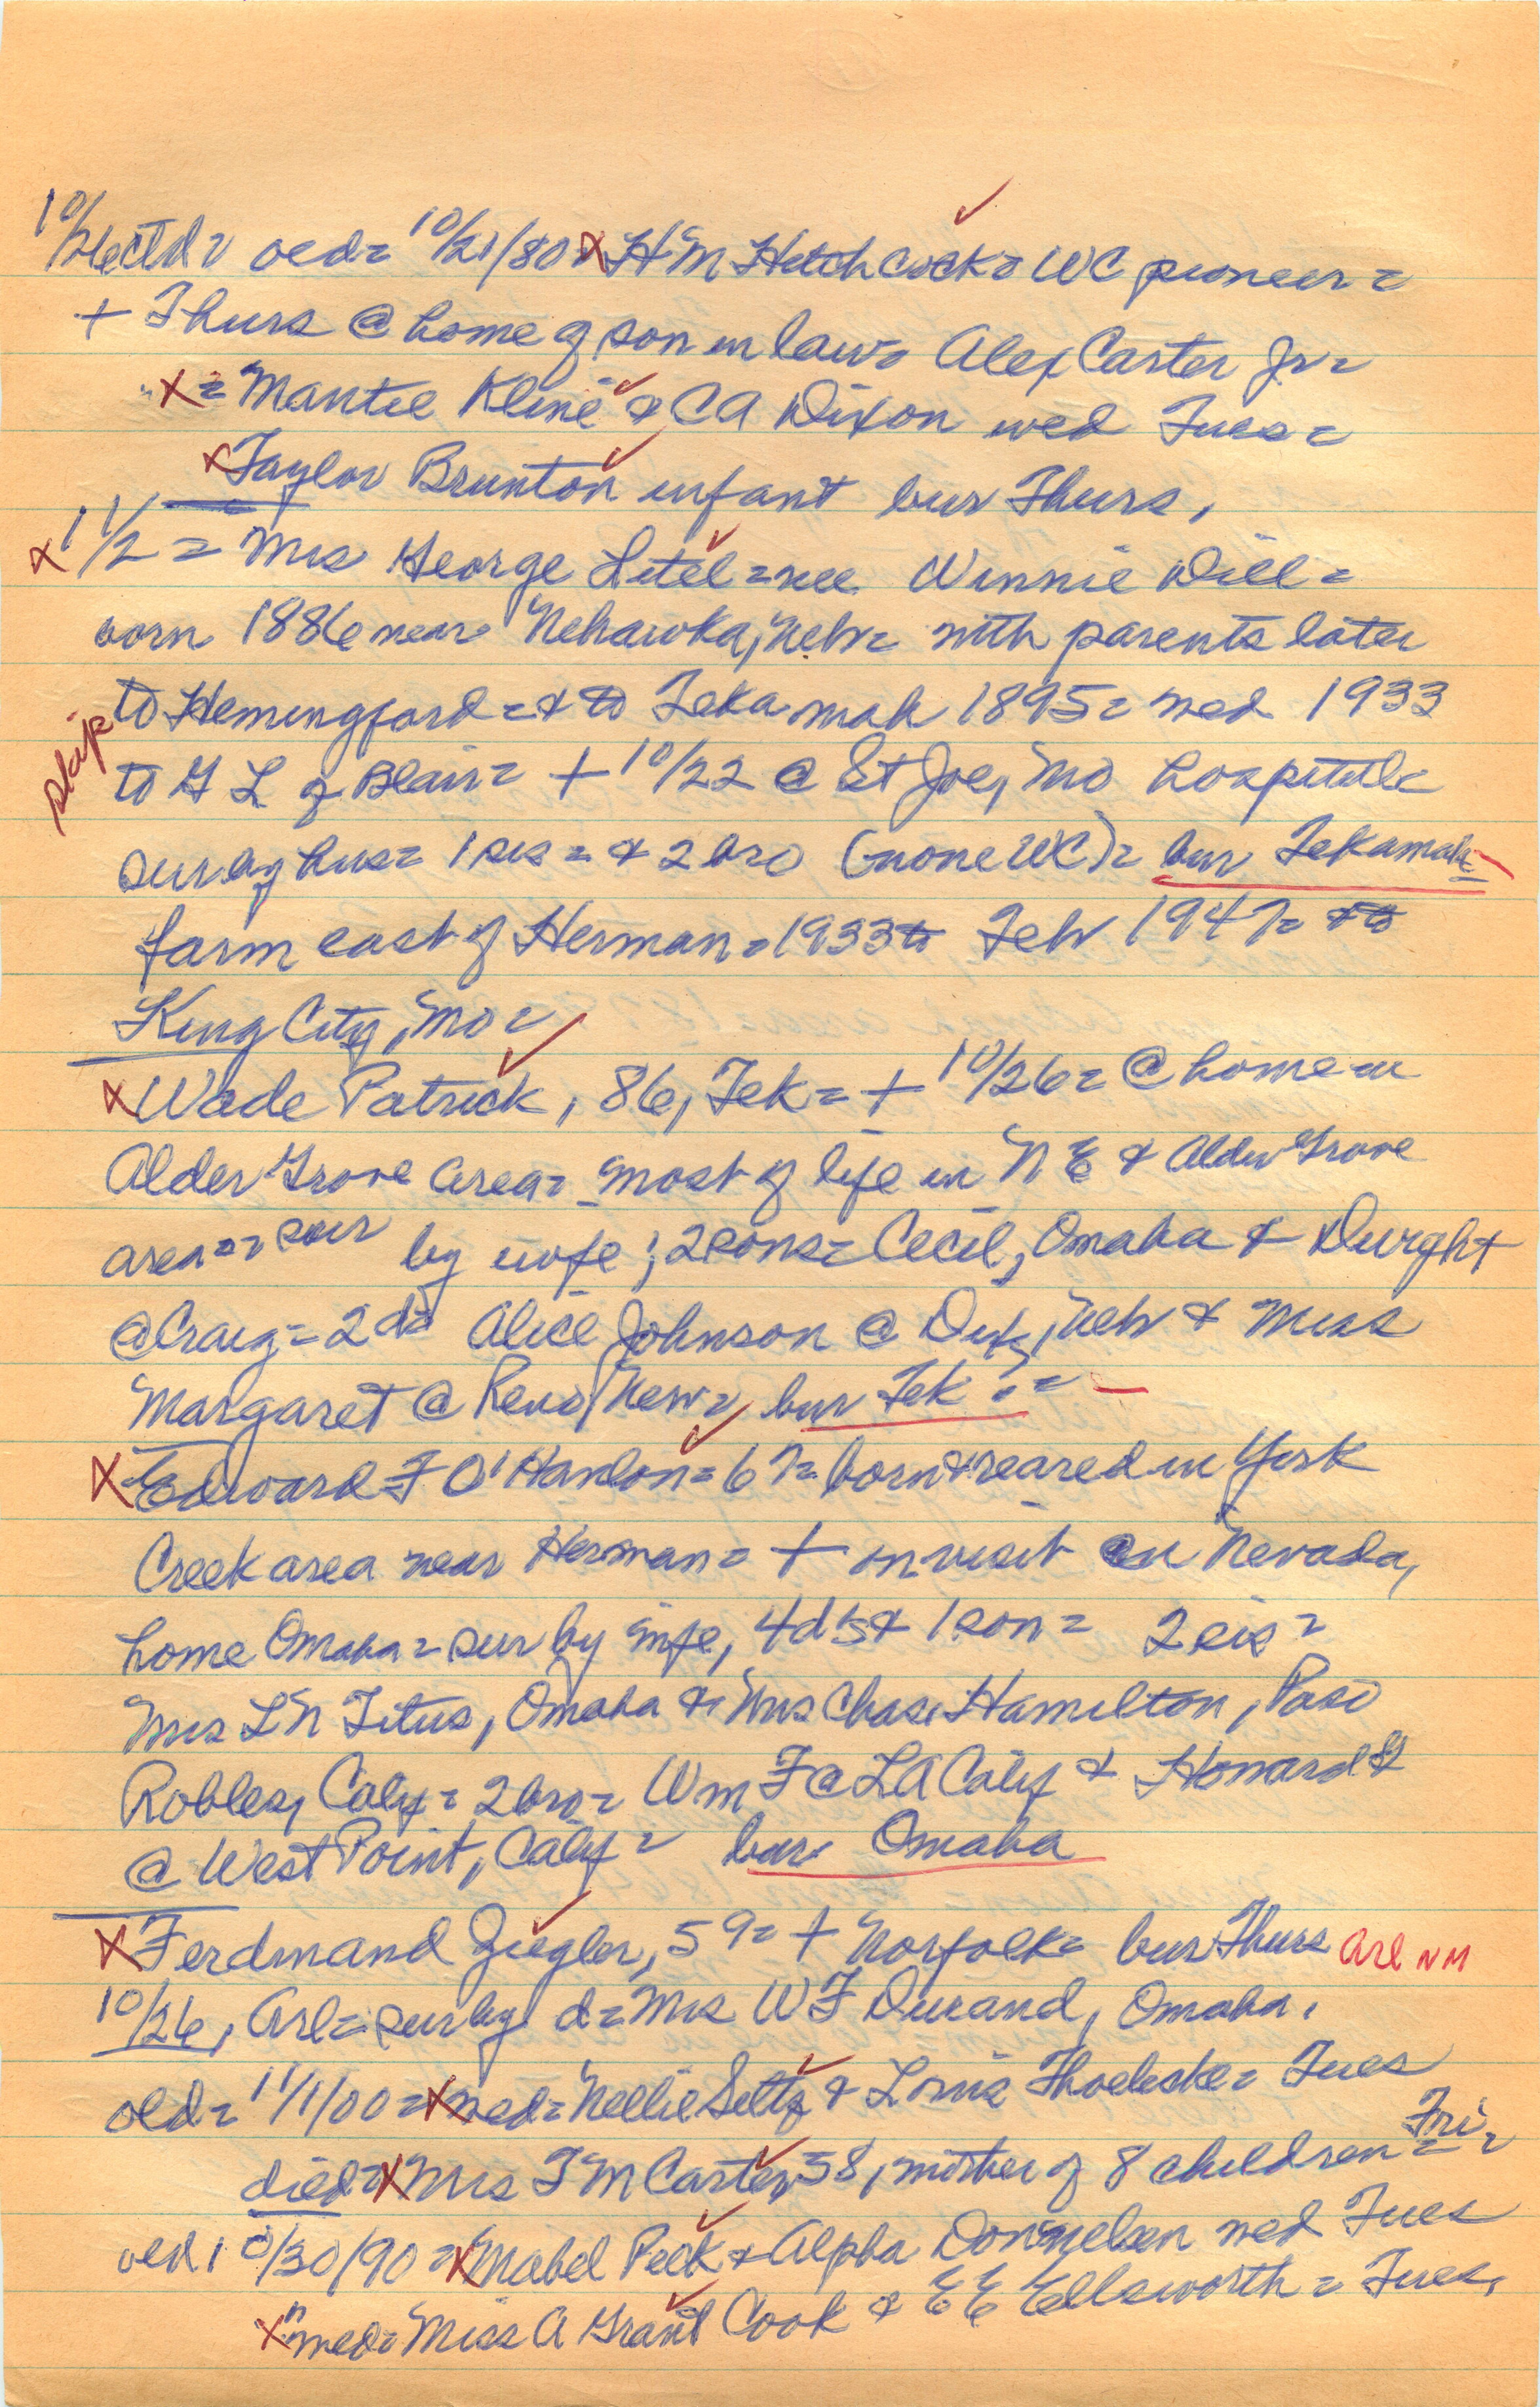 10/26 ctd = old = 10/21/80 = x H M Hitchcock = WC pioneer =
+ Thurs @ home of son in law = Alex Carter Jr =
" x = Mantie Kline & CA Dixon wed Tues =
x Taylor Brunton infant bur Thurs,
x 11/2 = Mrs George Litel = nee Winnie Dill =
born 1886 near Nehawka, Nebr = with parents later
to Hemingford = & to Tekamah 1895 = wed 1933
to G L of Blair = + 10/22 @ St Joe, Mo hospital =
sur by hus = 1 sis = & 2 bro (none WC) = bur Tekamah =
farm east of Herman = 1933 to Feb 1947 = & to
King City, Mo =
x Wade Patrick, 86, Tek = + 10/26 = @ home in
Alder Grove area = most of life in N E & Alder Grove
area = sur by wife; 2 sons = Cecil, Omaha & Dwight
@ Craig = 2 d = Alice Johnson @ Dix, Nebr & Miss
Margaret @ Reno, Nev = bur Tek ? = –
x Edward F O'Hanlon = 67 = born & reared in York
Creek area near Herman = + on visit in Nevada,
home Omaha = sur by wife, 4 d's & 1 son = 2 sis =
Mrs L N Titus, Omaha & Mrs Chas Hamilton, Paso
Robles, Calif = 2 bro = Wm F @ LA Calif & Howard
@ West Point, Calif = bur Omaha
x Ferdinand Ziegler, 59 = + Norfolk = bur Thurs Arl NM
10/26, Arl = sur by d = Mrs W F Durand, Omaha.
old = 11/1/00 = x wed = Nellie Seltz & Louis Thoeleske = Tues
died = x Mrs T M Carter 38, mother of 8 children = Fri =
old 10/30/90 = x Mabel Peck & Alpha Donnelsen wed Tues
x " wed = Miss A Grant Cook & E E Ellsworth = Tues.